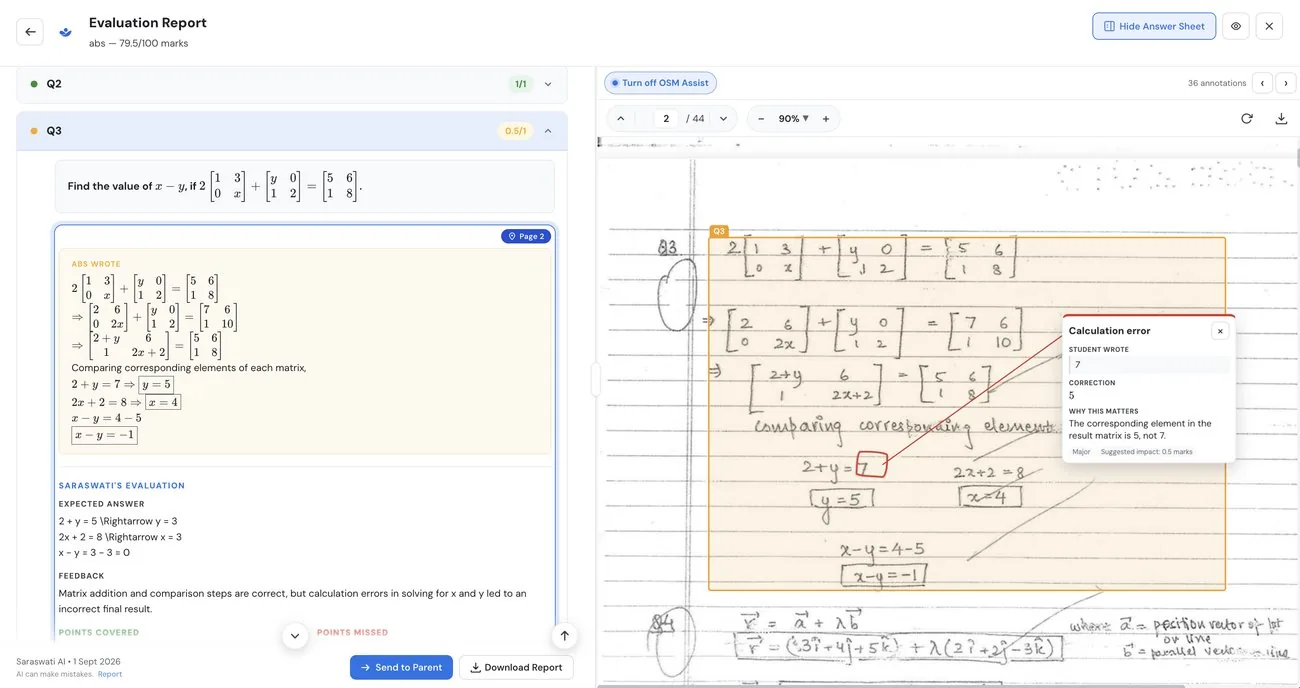 Evaluation Report
abs — 79.5/100 marks
Hide Answer Sheet
Q2
1/1
Q3
0.5/1
Find the value of x − y, if 2 [1 3; 0 x] + [y 0; 1 2] = [5 6; 1 8].
Page 2
ABS WROTE
2 [1 3; 0 x] + [y 0; 1 2] = [5 6; 1 8]
⇒ [2 6; 0 2x] + [y 0; 1 2] = [7 6; 1 10]
⇒ [2 + y 6; 1 2x + 2] = [5 6; 1 8]
Comparing corresponding elements of each matrix,
2 + y = 7 ⇒ y = 5
2x + 2 = 8 ⇒ x = 4
x − y = 4 − 5
x − y = −1
SARASWATI'S EVALUATION
EXPECTED ANSWER
2 + y = 5 \Rightarrow y = 3
2x + 2 = 8 \Rightarrow x = 3
x − y = 3 − 3 = 0
FEEDBACK
Matrix addition and comparison steps are correct, but calculation errors in solving for x and y led to an
incorrect final result.
POINTS COVERED
POINTS MISSED
Saraswati AI • 1 Sept 2026
AI can make mistakes. Report
Send to Parent
Download Report
Turn off OSM Assist
36 annotations
2 / 44
90%
Q3
Q3 2 [1 3; 0 x] + [y 0; 1 2] = [5 6; 1 8]
⇒ [2 6; 0 2x] + [y 0; 1 2] = [7 6; 1 10]
⇒ [2+y 6; 1 2x+2] = [5 6; 1 8]
comparing corresponding elements
2+y = 7 2x+2 = 8
y = 5 x=4
x-y = 4-5
x-y = -1
Calculation error
STUDENT WROTE
7
CORRECTION
5
WHY THIS MATTERS
The corresponding element in the
result matrix is 5, not 7.
Major Suggested impact: 0.5 marks
Q4 r = a + λb where a = position vector of pt
on line
r = (3i+4j+5k) + λ(2i+2j-3k) b = parallel vector line